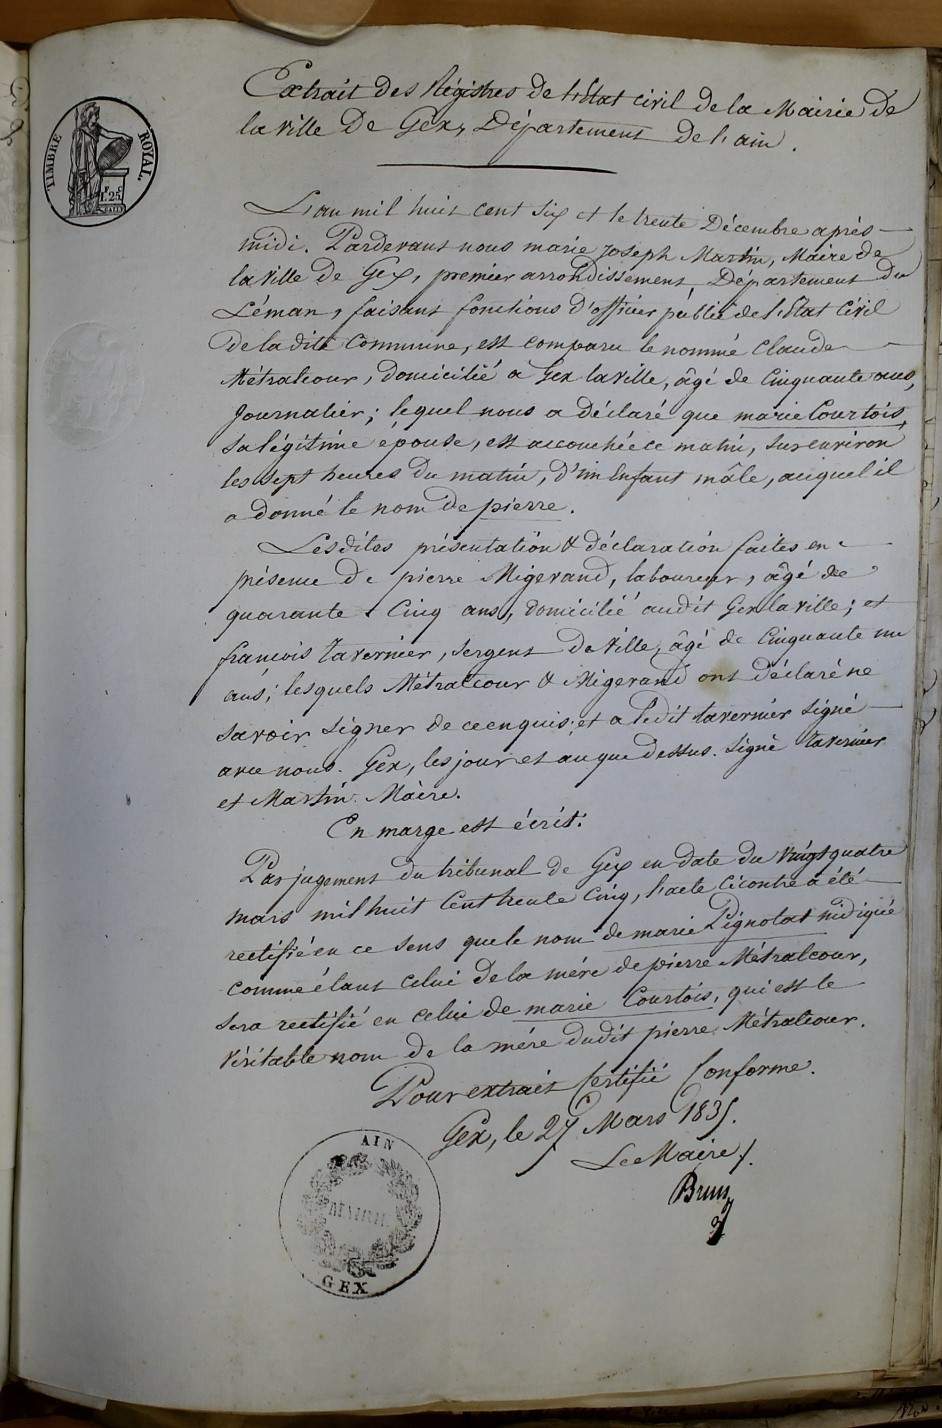 TIMBRE ROYAL.
1. 25
Extrait des Régistres de l'Etat civil de la Mairie de
la ville de Gex, Département de l'ain.
L'an mil huit cent six et le trente Décembre après
midi. Pardevant nous marie joseph Martin, Maire de
la ville de Gex, premier arrondissement Département du
Léman, faisant fonctions d'officier public de l'Etat Civil
de la dite Commune, est comparu le nommé Claude
Métralcour, domicilié à Gex la ville, âgé de Cinquante ans,
journalier; lequel nous a déclaré que marie Courtois,
sa légitime épouse, est accouchée ce matin, sur environ
les sept heures du matin, d'un Enfant mâle, auquel il
a donné le nom de pierre.
Lesdites présentation & déclaration faites en
présence de pierre Migerand, laboureur, âgé de
quarante Cinq ans, domicilié audit Gex la ville; et
francois tavernier, sergent de Ville, âgé de Cinquante un
ans; lesquels Métralcour & Migerand ont déclaré ne
savoir signer de ce enquis; et a ledit tavernier signé
avec nous. Gex, les jour et an que dessus. Signé tavernier
et Martin Maire.
En marge est écrit:
Par jugement du tribunal de Gex en date du Vingt quatre
mars mil huit Cent trente Cinq, l'acte cicontre a été
rectifié en ce sens que le nom de marie Pignolat indiqué
comme étant celui de la mére de pierre Métralcour,
sera rectifié en celui de marie Courtois, qui est le
véritable nom de la mére dudit pierre Métralcour.
Pour extrait Certifié Conforme.
Gex, le 27 Mars 1835.
Le Maire
AIN
MAIRIE
GEX